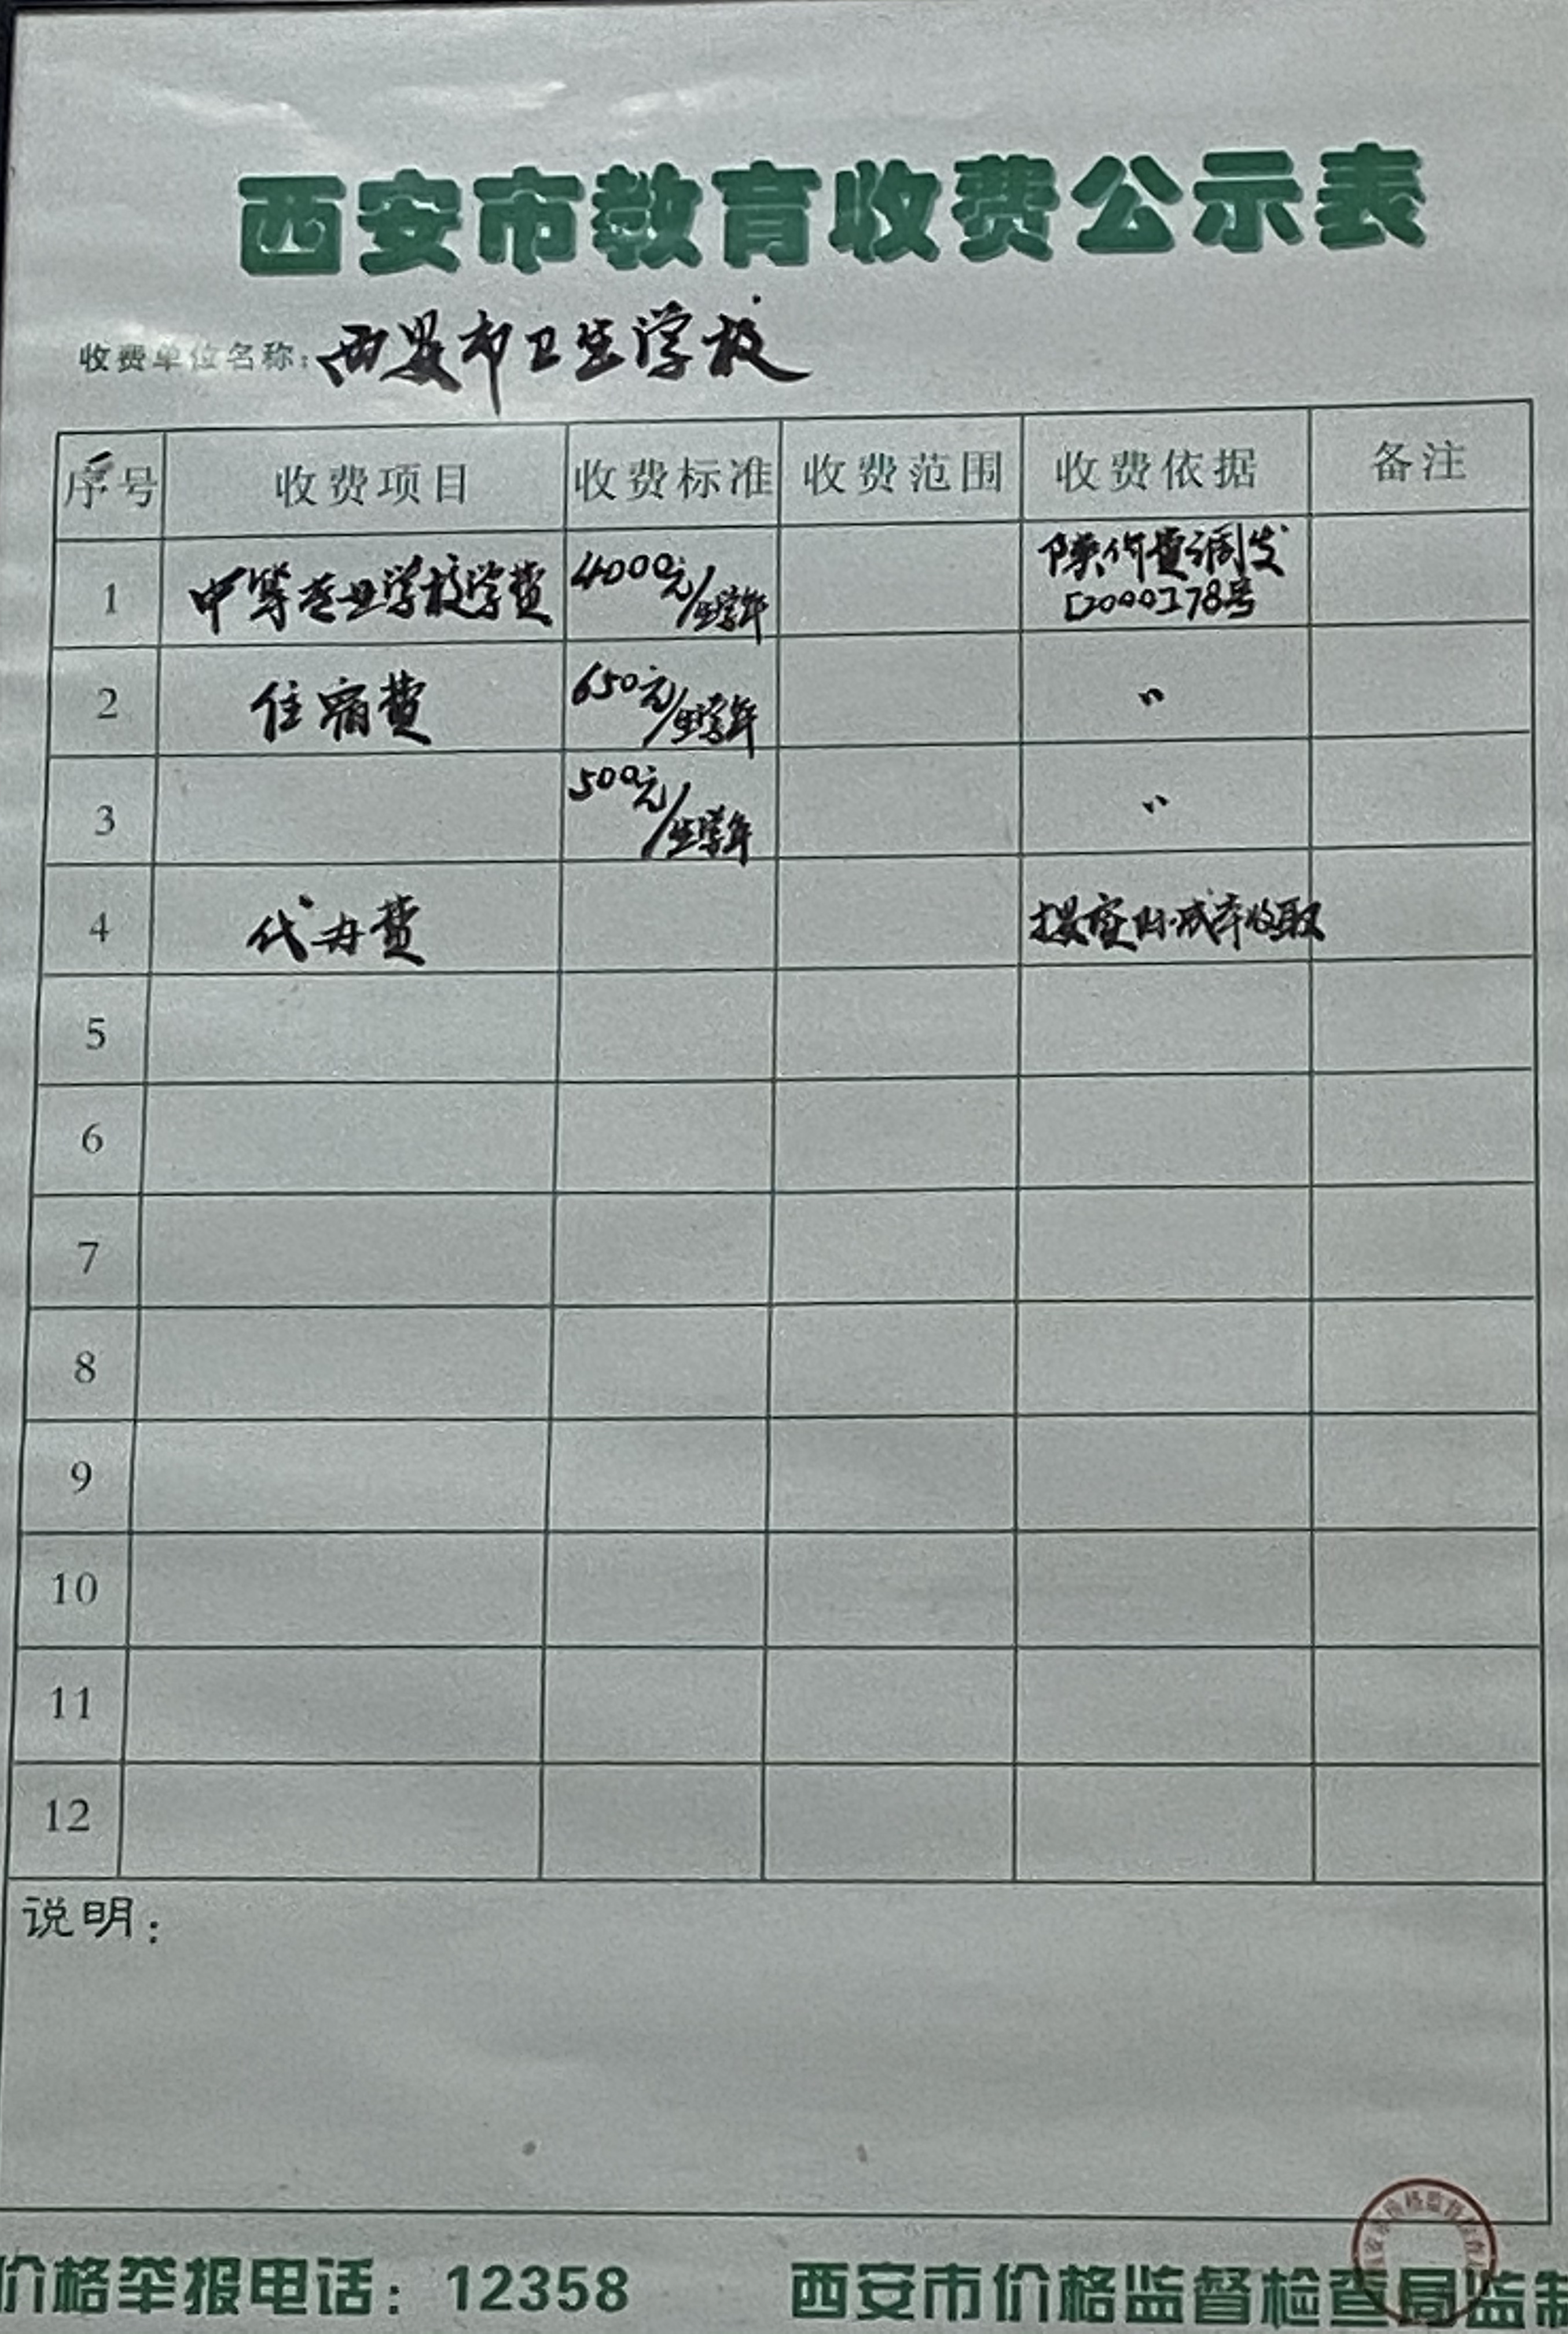 西安市教育收费公示表
收费单位名称：西安市卫生学校
序号 收费项目 收费标准 收费范围 收费依据 备注
1 中等专业学校学费 4000元/生学年 陕价费调发[2000]78号
2 住宿费 650元/生学年 〃
3 500元/生学年 〃
4 代办费 按实际成本收取
5
6
7
8
9
10
11
12
说明：
价格举报电话：12358 西安市价格监督检查局监制